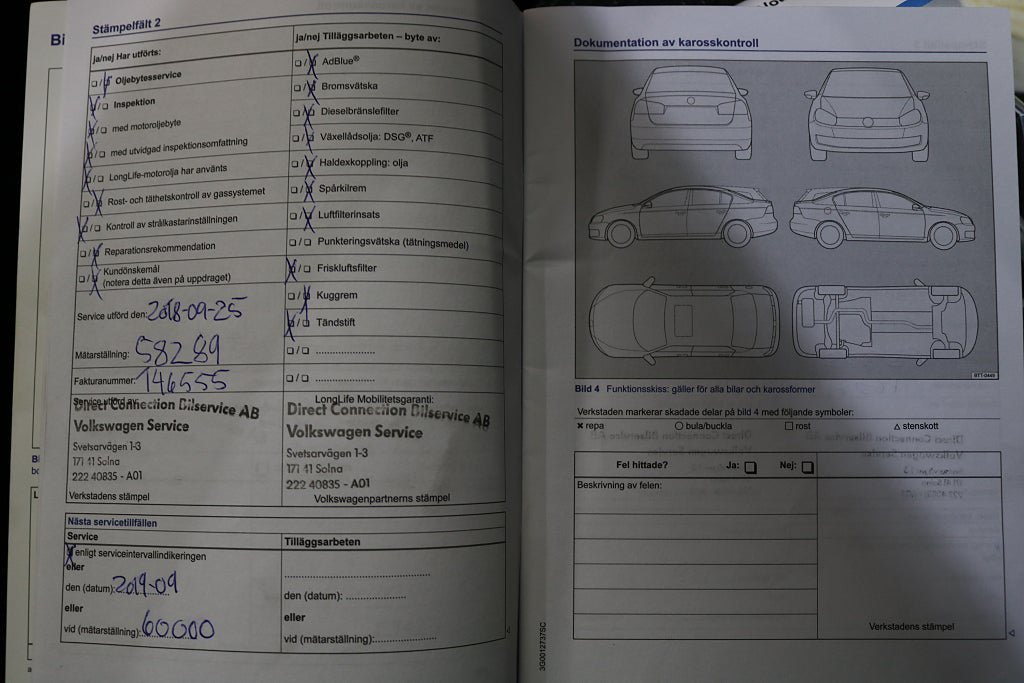 Bi
Stämpelfält 2
ja/nej Har utförts:
❏/❏ Oljebytesservice
❏/❏ Inspektion
❏/❏ med motoroljebyte
❏/❏ med utvidgad inspektionsomfattning
❏/❏ LongLife-motorolja har använts
❏/❏ Rost- och täthetskontroll av gassystemet
❏/❏ Kontroll av strålkastarinställningen
❏/❏ Reparationsrekommendation
❏/❏ Kundönskemål
(notera detta även på uppdraget)
Service utförd den: 2018-09-25
Mätarställning: 58289
Fakturanummer: 146555
Service utförd av:
Direct Connection Bilservice AB
Volkswagen Service
Svetsarvägen 1-3
171 41 Solna
222 40835 - A01
Verkstadens stämpel
ja/nej Tilläggsarbeten – byte av:
❏/❏ AdBlue®
❏/❏ Bromsvätska
❏/❏ Dieselbränslefilter
❏/❏ Växellådsolja: DSG®, ATF
❏/❏ Haldexkoppling: olja
❏/❏ Spårkilrem
❏/❏ Luftfilterinsats
❏/❏ Punkteringsvätska (tätningsmedel)
❏/❏ Friskluftsfilter
❏/❏ Kuggrem
❏/❏ Tändstift
❏/❏ ....................
❏/❏ ....................
LongLife Mobilitetsgaranti:
Direct Connection Bilservice AB
Volkswagen Service
Svetsarvägen 1-3
171 41 Solna
222 40835 - A01
Volkswagenpartnerns stämpel
Nästa servicetillfällen
Service
❏ enligt serviceintervallindikeringen
eller
den (datum): 2019-09
eller
vid (mätarställning): 60000
Tilläggsarbeten
..................................................
den (datum): ....................
eller
vid (mätarställning):....................
Dokumentation av karosskontroll
BTT-0449
Bild 4 Funktionsskiss: gäller för alla bilar och karossformer
Verkstaden markerar skadade delar på bild 4 med följande symboler:
✖ repa ○ bula/buckla ❏ rost △ stenskott
Fel hittade? Ja: ❏ Nej: ❏
Beskrivning av felen:
Verkstadens stämpel
3G0012737SC